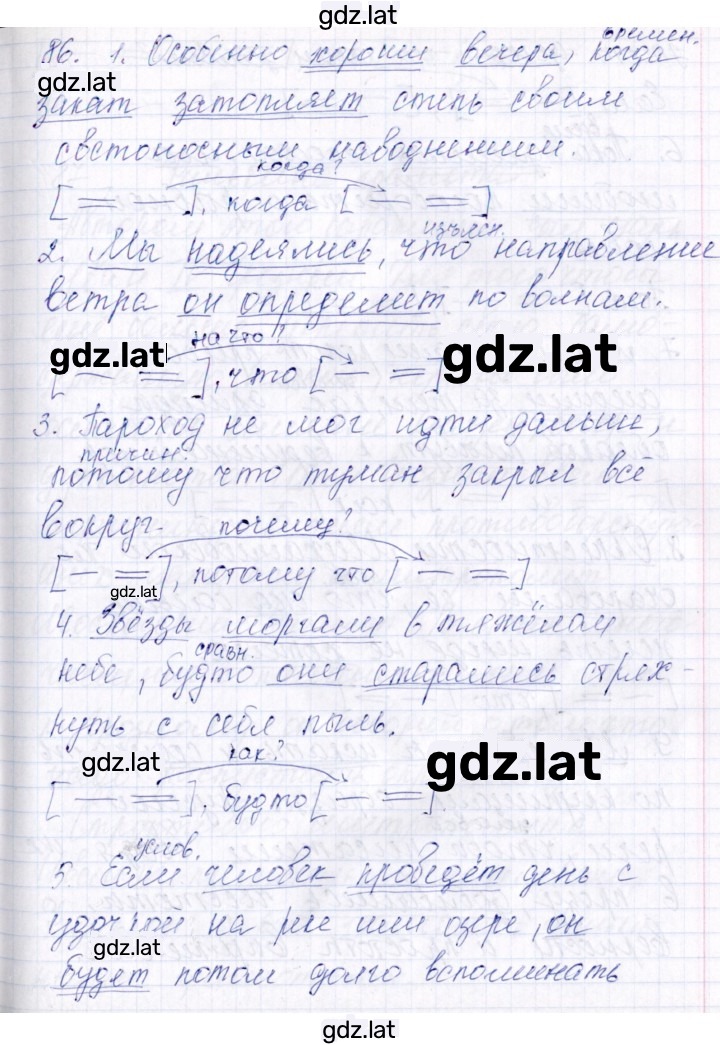 gdz.lat
времен.
86. 1. Особенно хороши вечера, когда
gdz.lat
закат затопляет степь своим
светоносным наводнением.
когда?
[= —], когда [— =]
изъясн.
2. Мы надеялись, что направление
ветра он определит по волнам.
на что?
gdz.lat
gdz.lat
[— =], что [— =]
3. Пароход не мог идти дальше,
причин.
потому что туман закрыл всё
вокруг.
почему?
[— =], потому что [— =]
gdz.lat
4. Звёзды моргали в тяжёлом
сравн.
небе, будто они старались стрях-
нуть с себя пыль.
gdz.lat
как?
gdz.lat
[— =], будто [— =]
услов.
5. Если человек проведёт день с
удочкой на реке или озере, он
gdz.lat
будет потом долго вспоминать
gdz.lat